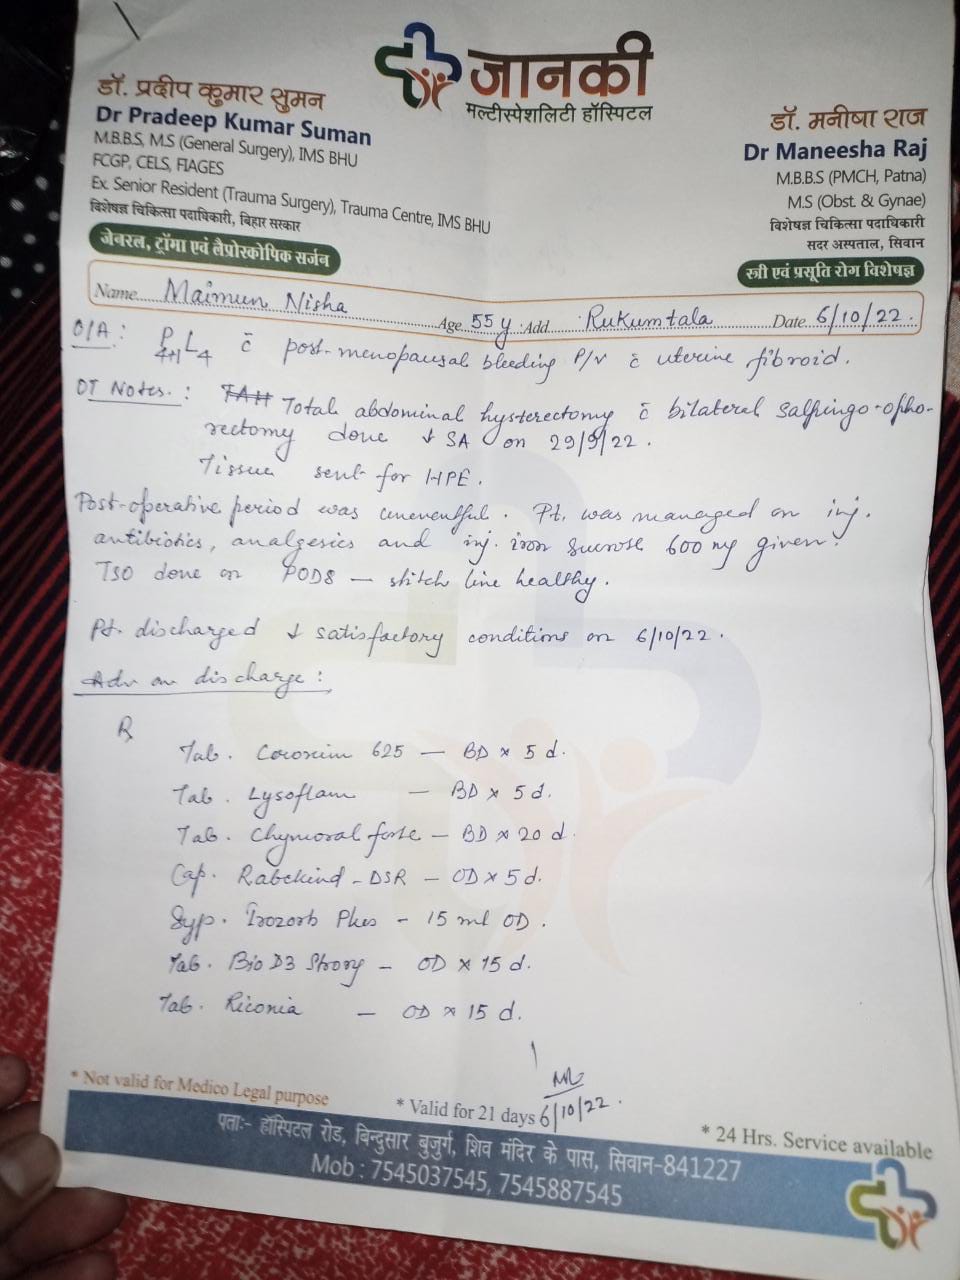 जानकी
मल्टीस्पेशलिटी हॉस्पिटल
डॉ. प्रदीप कुमार सुमन
Dr Pradeep Kumar Suman
M.B.B.S, M.S (General Surgery), IMS BHU
FCGP, CELS, FIAGES
Ex. Senior Resident (Trauma Surgery), Trauma Centre, IMS BHU
विशेषज्ञ चिकित्सा पदाधिकारी, बिहार सरकार
जेनरल, ट्रॉमा एवं लैप्रोस्कोपिक सर्जन
डॉ. मनीषा राज
Dr Maneesha Raj
M.B.B.S (PMCH, Patna)
M.S (Obst. & Gynae)
विशेषज्ञ चिकित्सा पदाधिकारी
सदर अस्पताल, सिवान
स्त्री एवं प्रसूति रोग विशेषज्ञ
Name Maimun Nisha Age 55 y Add Rukumtala Date 6/10/22.
O/A : P4+1 L4 c̄ post-menopausal bleeding P/V c̄ uterine fibroid.
OT Notes. : TAH Total abdominal hysterectomy c̄ bilateral salpingo-opho-
rectomy done ↓ SA on 29/9/22.
Tissue sent for HPE.
Post-operative period was uneventful. Pt. was managed on inj.
antibiotics, analgesics and inj. iron sucrose 600 mg given.
TSO done on POD8 — stitch line healthy.
Pt. discharged ↓ satisfactory conditions on 6/10/22.
Adv on discharge :
℞
Tab. 625 — BD x 5 d.
Tab. Lysoflam — BD x 5 d.
Tab. Chymoral forte — BD x 20 d
Cap. Rabekind-DSR — OD x 5 d.
Syp. Irozorb Plus - 15 ml OD.
Tab. Bio D3 Strong — OD x 15 d.
Tab. Riconia — OD x 15 d.
6/10/22.
* Not valid for Medico Legal purpose
* Valid for 21 days
* 24 Hrs. Service available
पता:- हॉस्पिटल रोड, बिन्दुसार बुजुर्ग, शिव मंदिर के पास, सिवान-841227
Mob : 7545037545, 7545887545